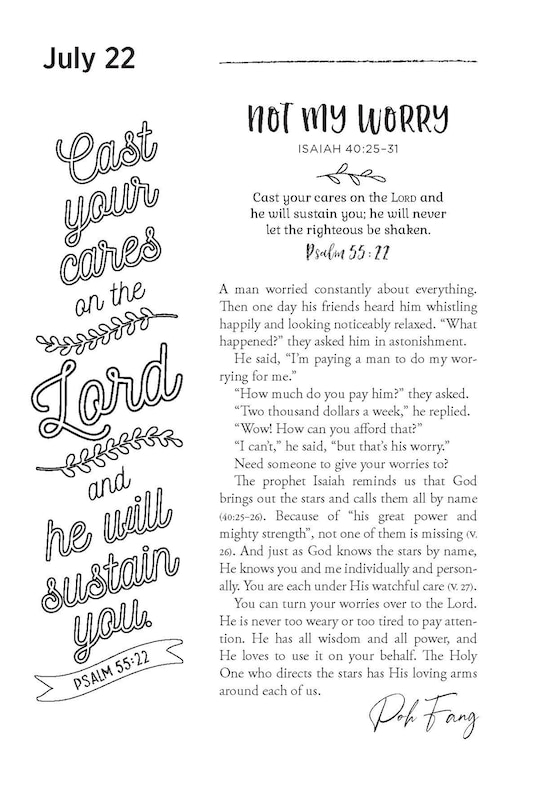 July 22
Cast
your
cares
on the
Lord
and
he will
sustain
you.
PSALM 55:22
NOT MY WORRY
ISAIAH 40:25–31
Cast your cares on the LORD and
he will sustain you; he will never
let the righteous be shaken.
Psalm 55:22
A man worried constantly about everything.
Then one day his friends heard him whistling
happily and looking noticeably relaxed. “What
happened?” they asked him in astonishment.
He said, “I’m paying a man to do my wor-
rying for me.”
“How much do you pay him?” they asked.
“Two thousand dollars a week,” he replied.
“Wow! How can you afford that?”
“I can’t,” he said, “but that’s his worry.”
Need someone to give your worries to?
The prophet Isaiah reminds us that God
brings out the stars and calls them all by name
(40:25–26). Because of “his great power and
mighty strength”, not one of them is missing (V.
26). And just as God knows the stars by name,
He knows you and me individually and person-
ally. You are each under His watchful care (V. 27).
You can turn your worries over to the Lord.
He is never too weary or too tired to pay atten-
tion. He has all wisdom and all power, and
He loves to use it on your behalf. The Holy
One who directs the stars has His loving arms
around each of us.
Poh Fang